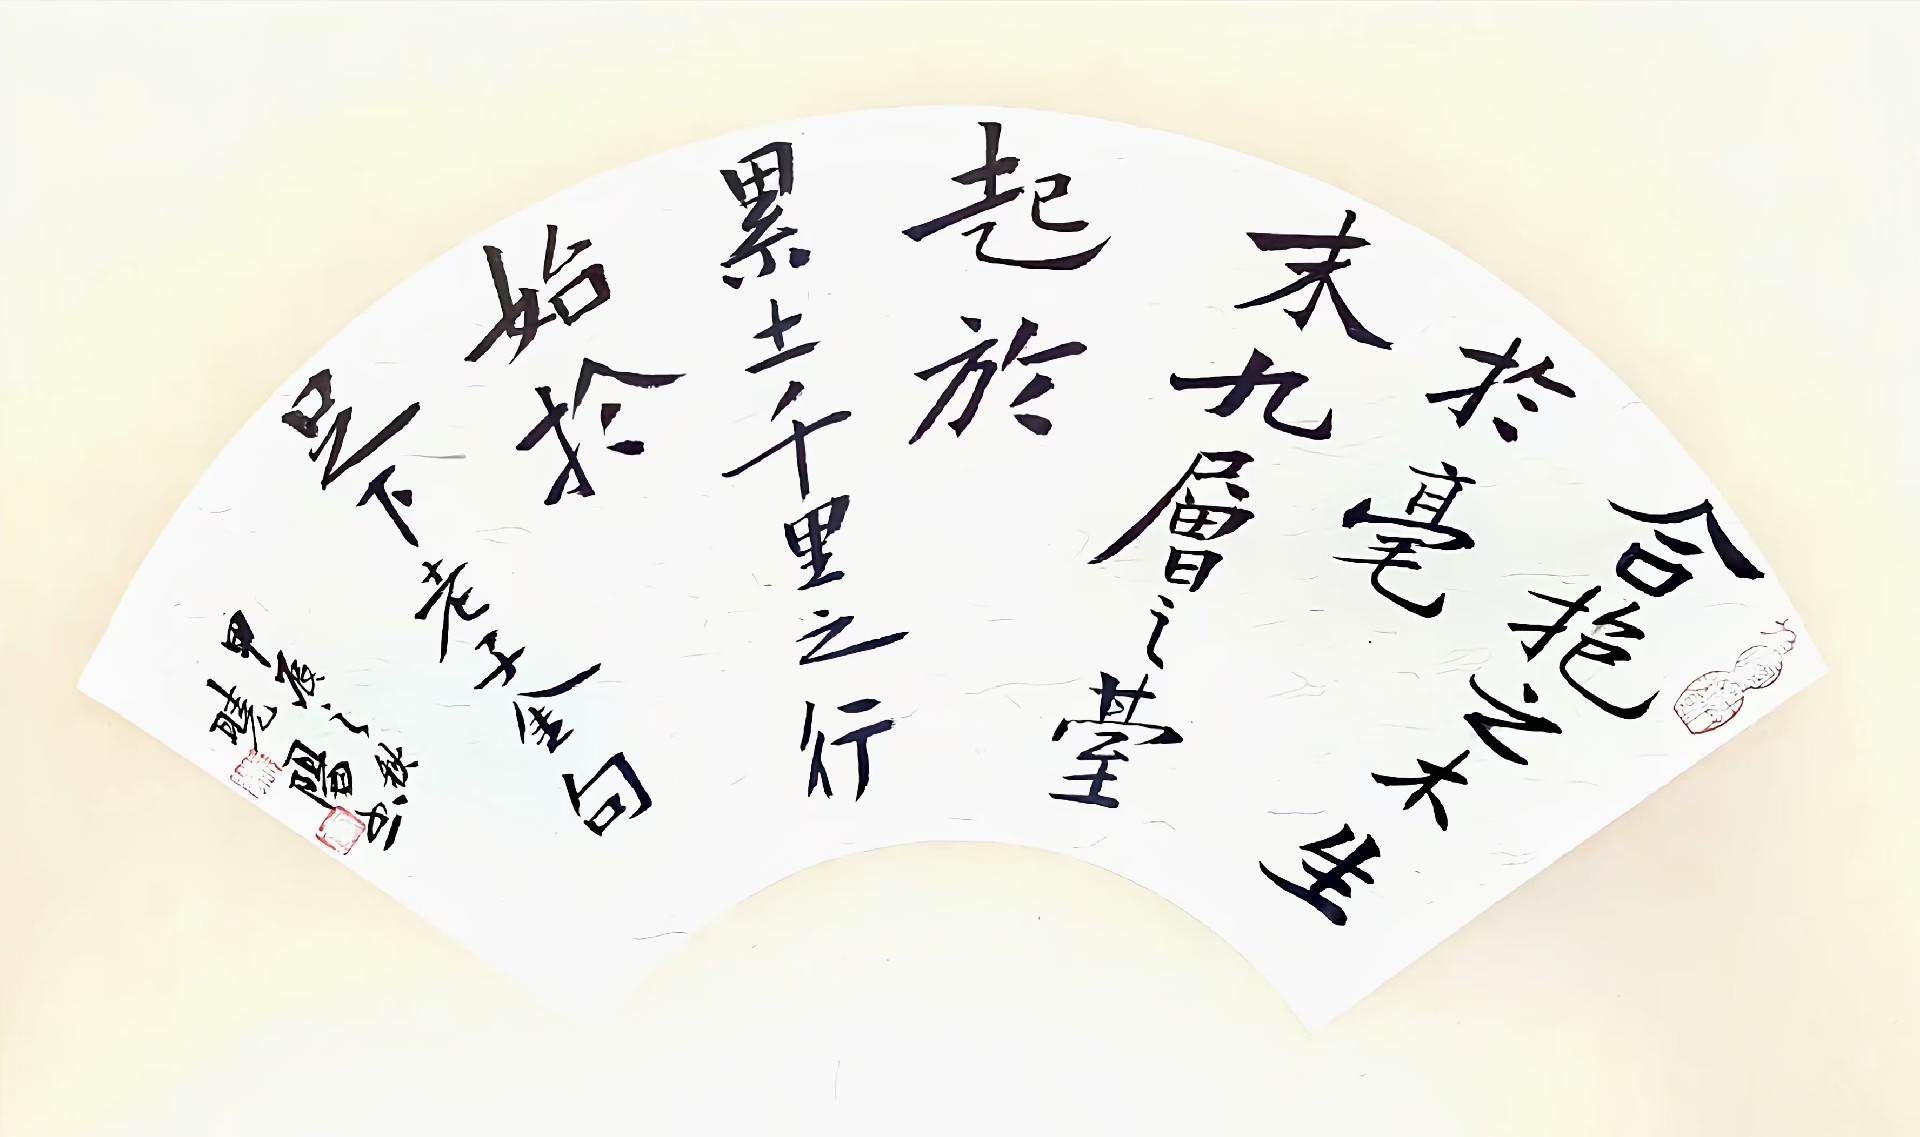 合抱之木生
於毫
末九層之臺
起於
累土千里之行
始於
足下老子金句
甲辰之秋書
曉陽